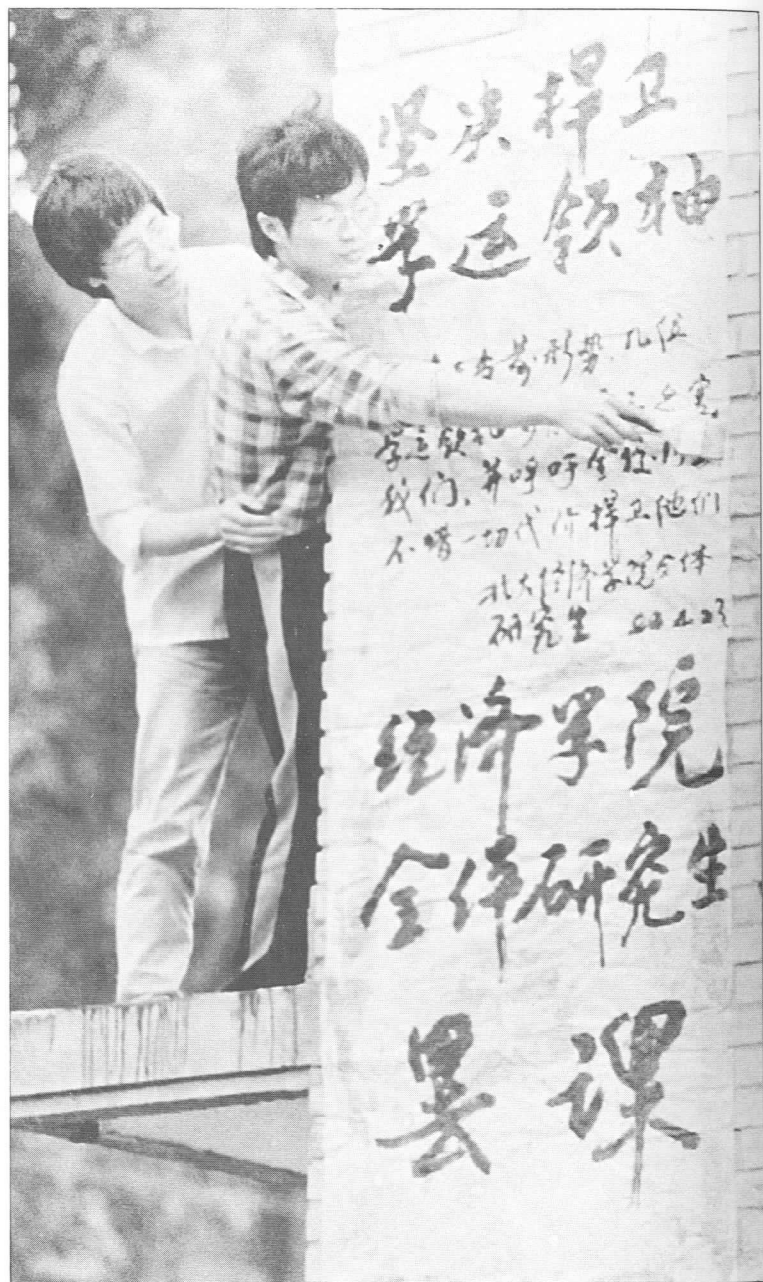 坚决捍卫
学运领袖
当前形势，几位
学运领袖
我们，并呼吁全校
不惜一切代价捍卫他们
北大经济学院全体
研究生
经济学院
全体研究生
罢课